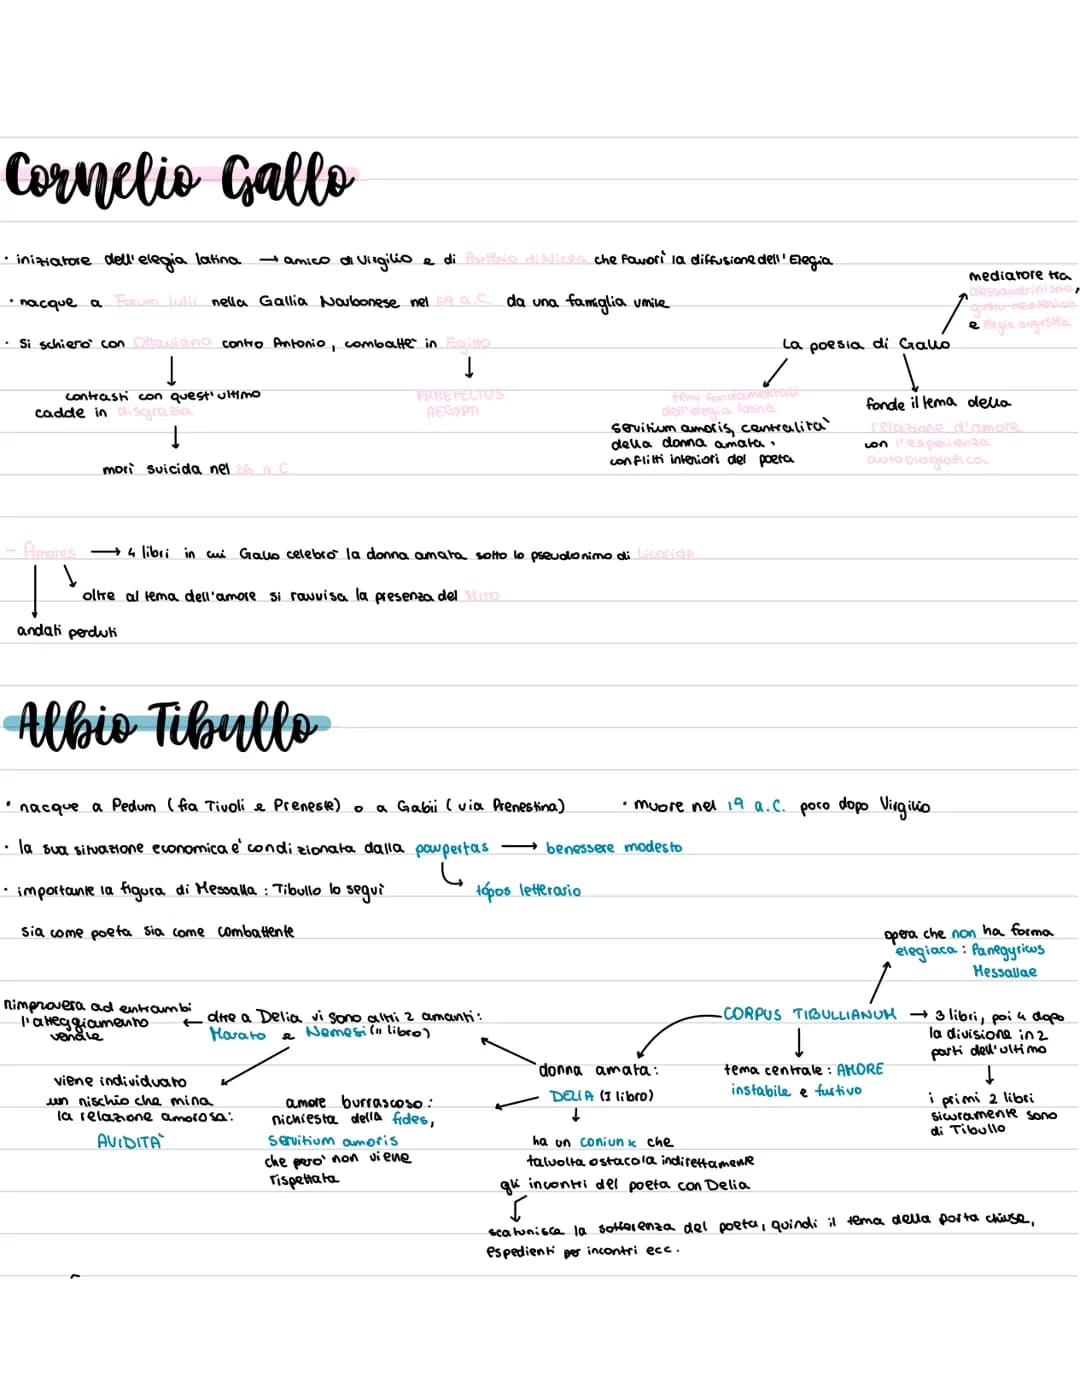 Cornelio Gallo
• iniziatore dell'elegia latina → amico di Virgilio e di Partenio di Nicea che favorì la diffusione dell'Elegia
• nacque a Forum Iulii nella Gallia Narbonese nel 69 a.C. da una famiglia umile
• Si schierò con Ottaviano contro Antonio, combatte in Egitto
contrasti con quest'ultimo
cadde in disgrazia
morì suicida nel 26 a.C.
PRAEFECTUS
AEGYPTI
La poesia di Gallo
mediatore tra
alessandrinismo,
gusto neoterico
e elegia augustea
temi fondamentali
dell'elegia latina
servitium amoris, centralità
della donna amata,
conflitti interiori del poeta
fonde il tema della
relazione d'amore
con l'esperienza
autobiografica
- Amores → 4 libri in cui Gallo celebrò la donna amata sotto lo pseudonimo di Licoride
oltre al tema dell'amore si ravvisa la presenza del Mito
andati perduti
Albio Tibullo
• nacque a Pedum (fra Tivoli e Preneste) o a Gabii (via Prenestina)
• muore nel 19 a.C. poco dopo Virgilio
• la sua situazione economica è condizionata dalla paupertas → benessere modesto
tópos letterario
• importante la figura di Messalla : Tibullo lo seguì
sia come poeta sia come combattente
opera che non ha forma
elegiaca : Panegyricus
Messallae
CORPUS TIBULLIANUM → 3 libri, poi 4 dopo
la divisione in 2
parti dell'ultimo
i primi 2 libri
sicuramente sono
di Tibullo
tema centrale : AMORE
instabile e furtivo
donna amata :
DELIA (I libro)
ha un coniunx che
talvolta ostacola indirettamente
gli incontri del poeta con Delia
scaturisce la sofferenza del poeta, quindi il tema della porta chiusa,
espedienti per incontri ecc.
amore burrascoso :
richiesta della fides,
servitium amoris
che però non viene
rispettata
oltre a Delia vi sono altri 2 amanti :
Marato e Nemesi (II libro)
rimprovera ad entrambi
l'atteggiamento
venale
viene individuato
un rischio che mina
la relazione amorosa :
AVIDITÀ